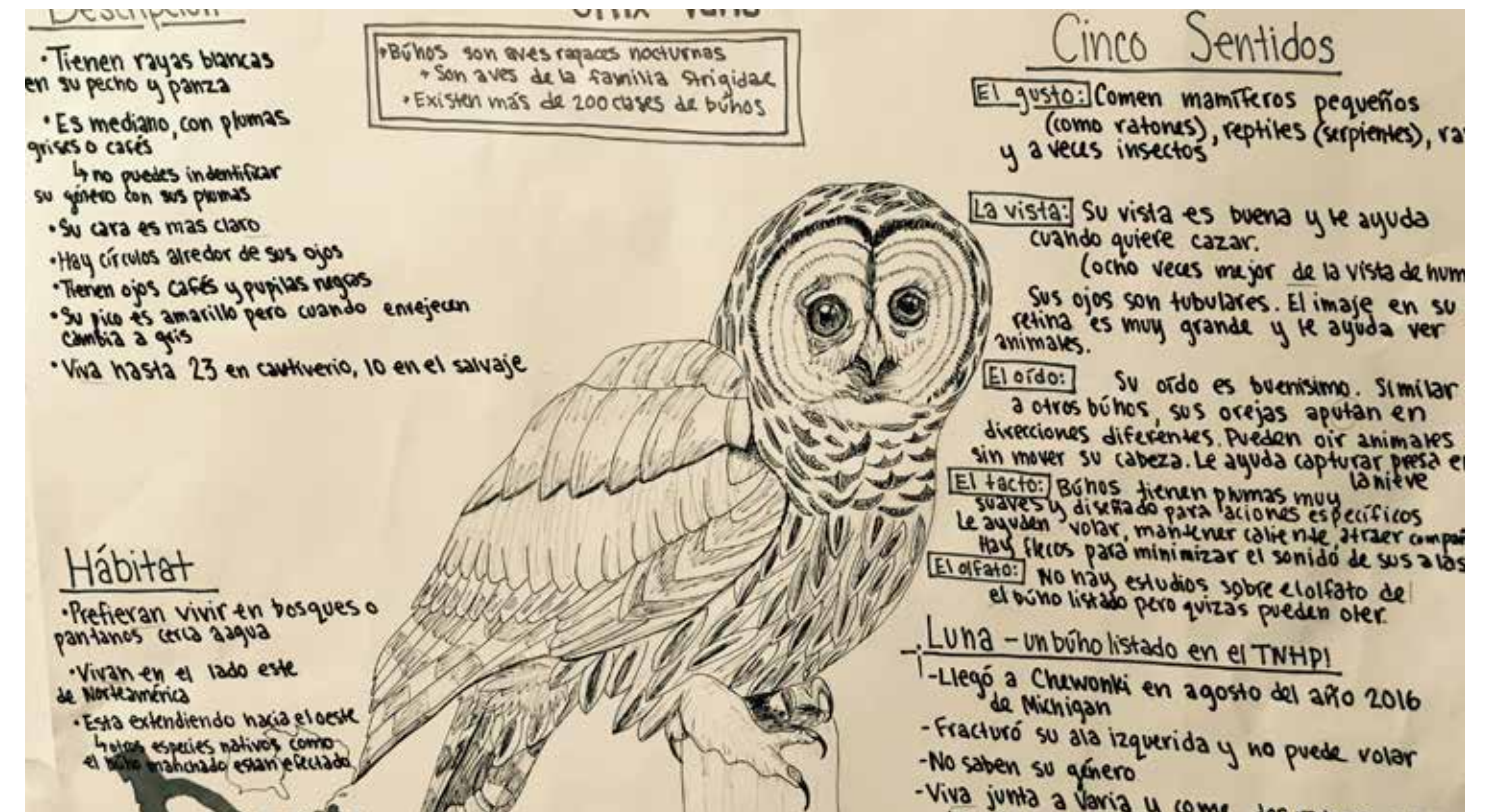 Descripción
• Tienen rayas blancas
en su pecho y panza
• Es mediano, con plumas
grises o cafés
↳ no puedes indentificar
su género con sus plumas
• Su cara es mas claro
• Hay círculos alredor de sus ojos
• Tienen ojos cafés y pupilas negras
• Su pico es amarillo pero cuando envejecen
cambia a gris
• Viva hasta 23 en cautiverio, 10 en el salvaje
Hábitat
• Prefieran vivir en bosques o
pantanos cerca a agua
• Vivan en el lado este
de Norteamérica
• Esta extendiendo hacia el oeste
↳ otros especies nativos como
el búho manchado estan efectado
Varia
• Búhos son aves rapaces nocturnas
• Son aves de la familia Strigidae
• Existen más de 200 clases de búhos
Cinco Sentidos
El gusto: Comen mamíferos pequeños
(como ratones), reptiles (serpientes), ra
y a veces insectos
La vista: Su vista es buena y le ayuda
cuando quiere cazar.
(ocho veces mejor de la vista de hum
Sus ojos son tubulares. El imaje en su
retina es muy grande y le ayuda ver
animales.
El oído: Su oído es buenísimo. Similar
a otros búhos, sus orejas aputan en
direcciones diferentes. Pueden oir animales
sin mover su cabeza. Le ayuda capturar presa en
la nieve
El tacto: Búhos tienen plumas muy
suaves y diseñado para aciones específicos
Le ayuden volar, mantener caliente, atraer compañ
Hay flecos para minimizar el sonido de sus alas
El olfato: No hay estudios sobre el olfato de
el búho listado pero quizas pueden oler.
Luna – un búho listado en el TNHPI
- Llegó a Chewonki en agosto del año 2016
de Michigan
- Fracturó su ala izquerida y no puede volar
- No saben su género
- Viva junta a Varia y come